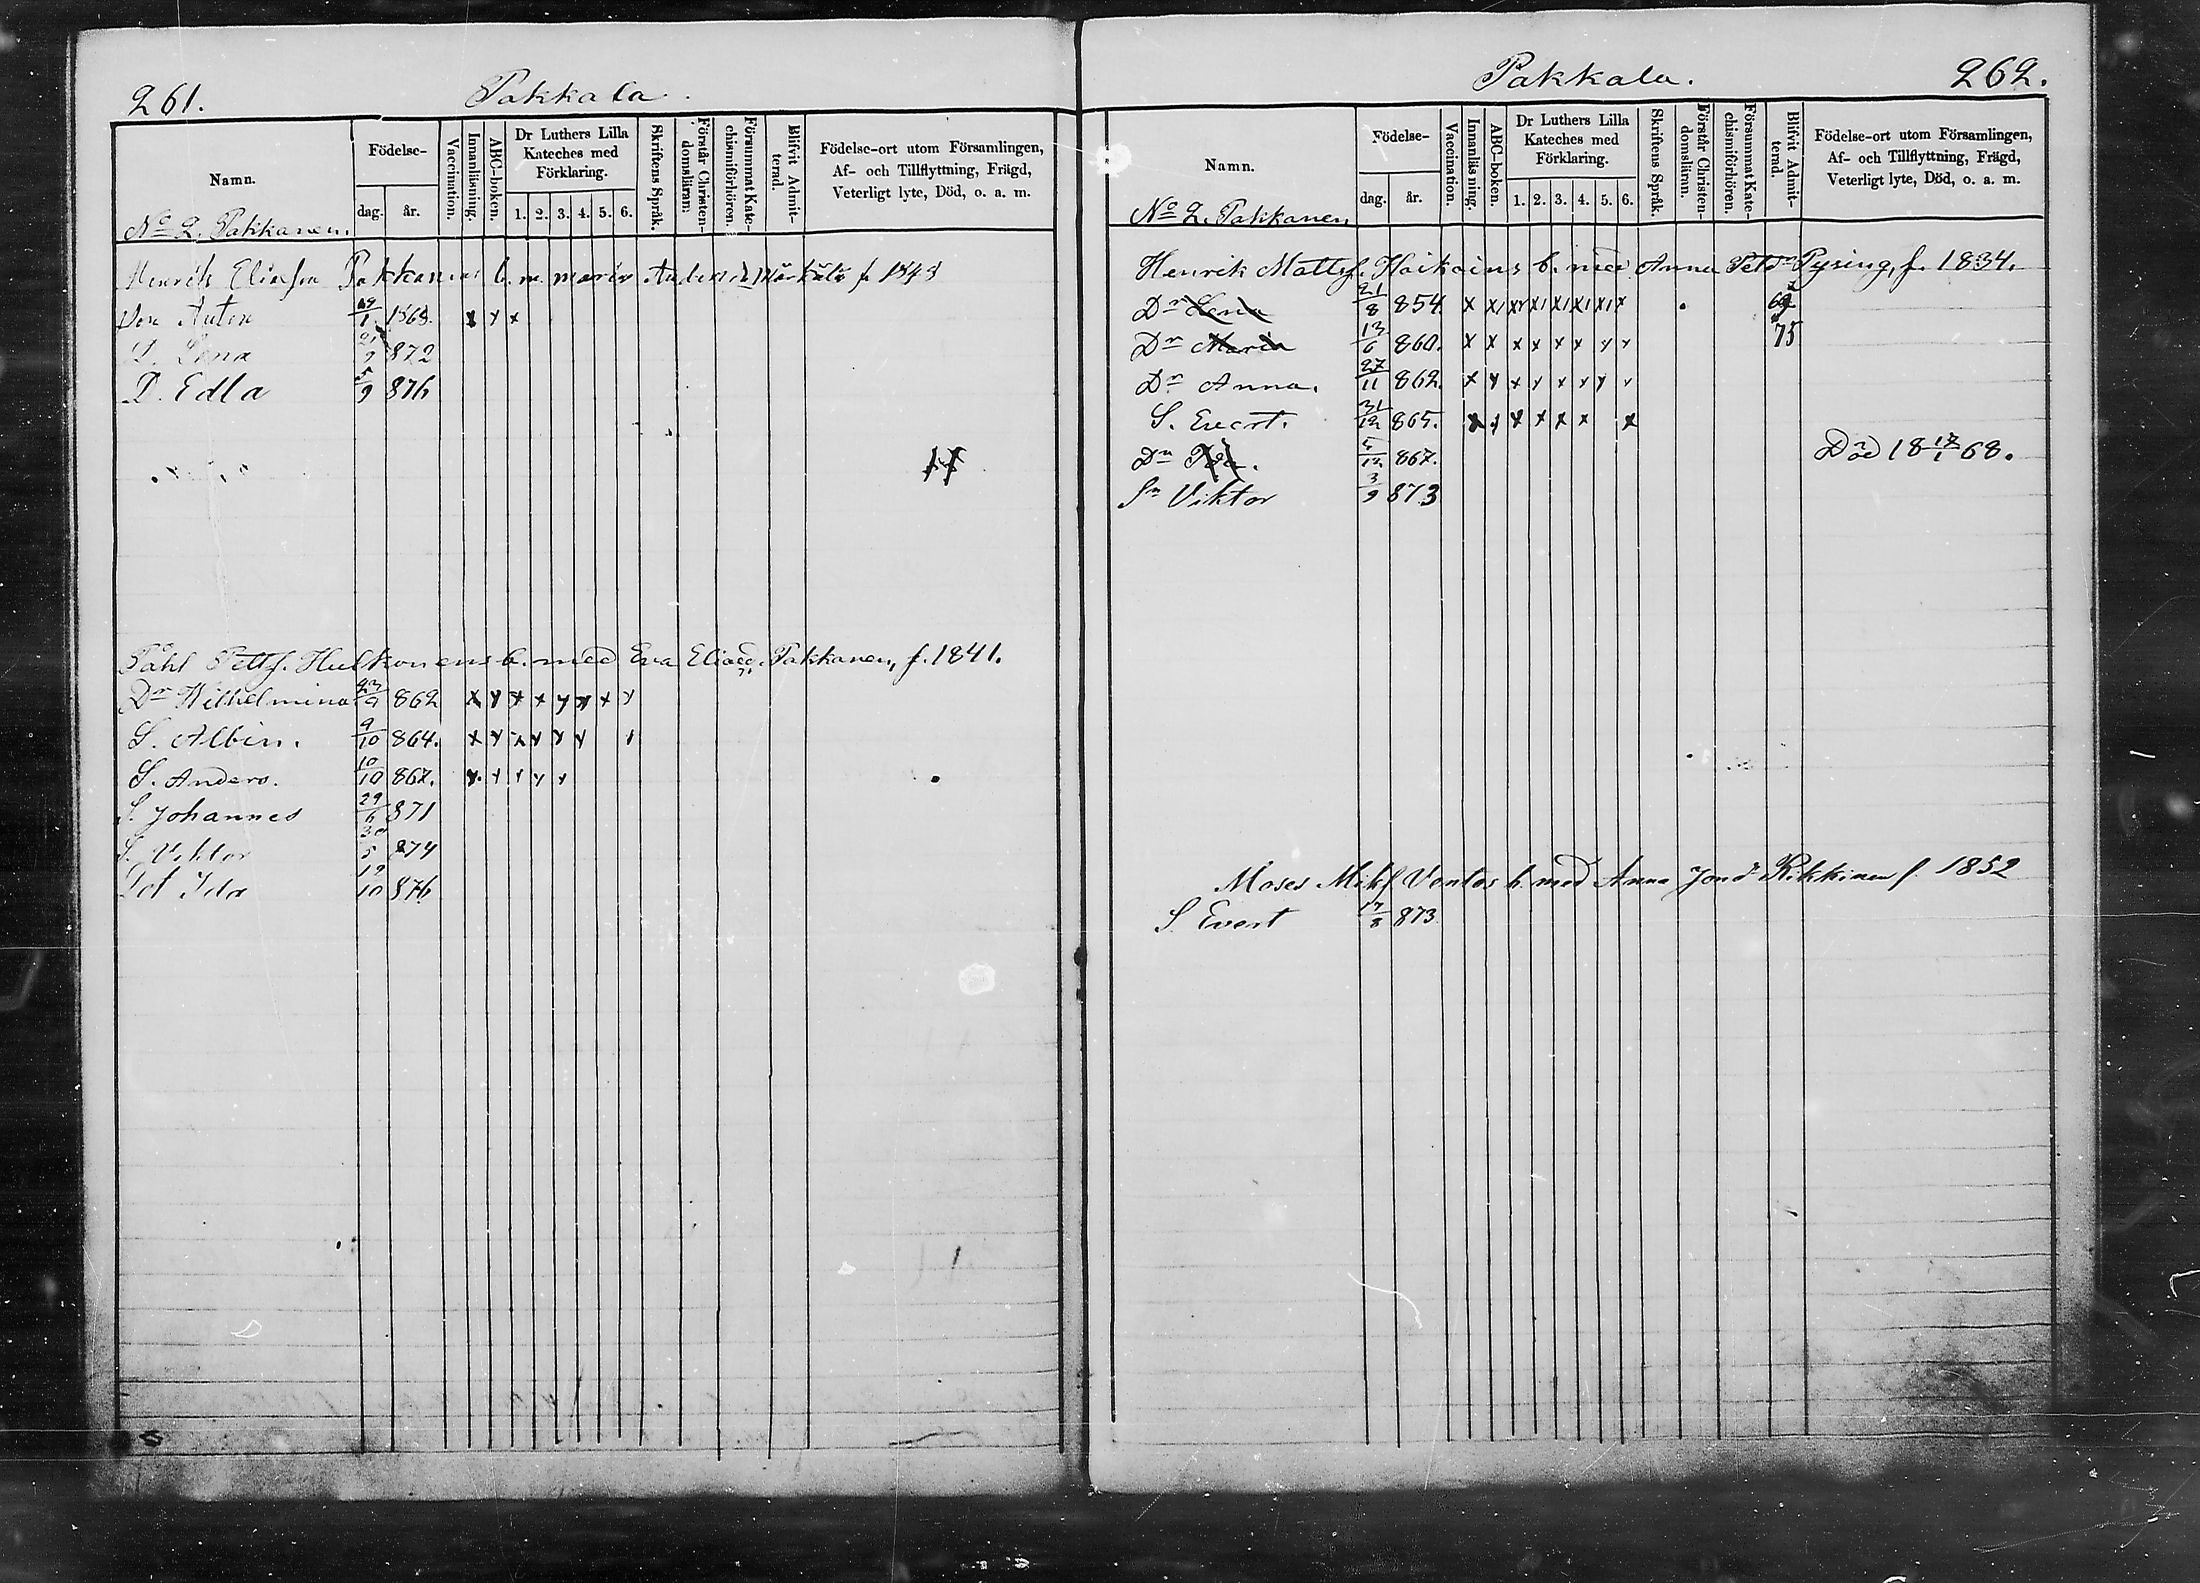 261.
Pakkala.
Namn.
Födelse-
dag.
år.
Vaccination.
Innanläsning.
ABC-boken.
Dr Luthers Lilla Kateches med Förklaring.
1. 2. 3. 4. 5. 6.
Skriftens Språk.
Förstår Christen-domsläran:
Försummat Kate-chismiförhören.
Blifvit Admit-terad.
Födelse-ort utom Församlingen,
Af- och Tillflyttning, Frägd,
Veterligt lyte, Död, o. a. m.
No 2. Pakkanen.
Henrik Eliasson Pakkanens b. m. Maria Andersd. f. 1843
Son Anton 1 1868. x x x
D. Lena 872
D. Edla 5/9 876
Påhl Pettf. Hulkonens b. med Eva Eliaed. Pakkanen, f. 1841.
Dr Wilhelmina 23/9 862 x x x x x x x x
S. Albin. 9/10 864. x x x x x x x
S. Anders. 10/10 867. x x x x x
S. Johannes 29/6 871
S. Viktor 30/5 874
Dot Ida 19/10 876
Pakkala.
262.
Namn.
Födelse-
dag.
år.
Vaccination.
Innanläsning.
ABC-boken.
Dr Luthers Lilla Kateches med Förklaring.
1. 2. 3. 4. 5. 6.
Skriftens Språk.
Förstår Christen-domsläran.
Försummat Kate-chismiförhören.
Blifvit Admit-terad.
Födelse-ort utom Församlingen,
Af- och Tillflyttning, Frägd,
Veterligt lyte, Död, o. a. m.
No 2. Pakkanen.
Henrik Mattsf. Hoikains b. med Anna Petd Pysing, f. 1834.
Dr Lena 21/8 854. x x x x x x x x
Dr Maria 13/6 860. x x x x x x x x 75
Dr Anna. 27/11 862. x x x x x x x x
S. Evert. 31/12 865. x x x x x x x
Dn Ida. 5/12 867. Död 18 17/1 68.
Sn Viktor 3/9 873
Moses Mikf b. med Anna Jond Rikkinen f. 1852
S. Evert 17/8 873